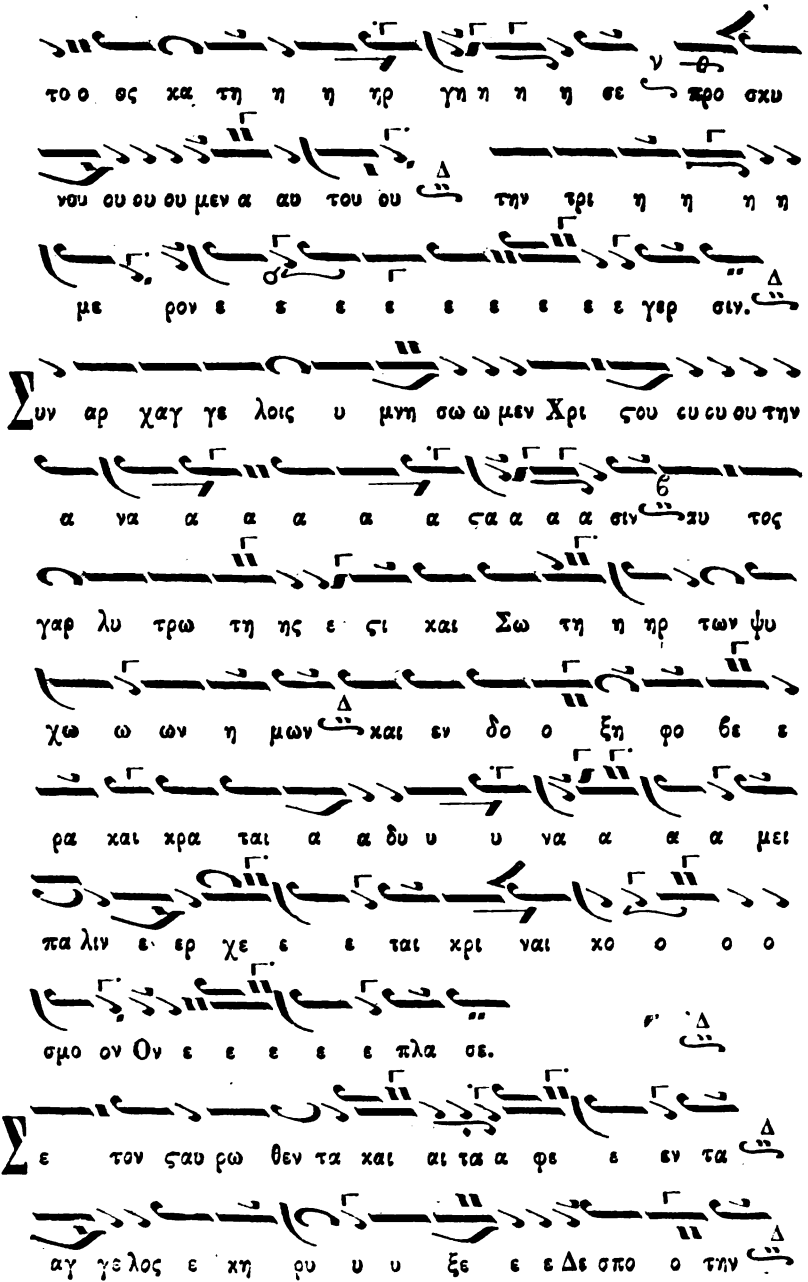 το ο ος κα τη η η ηρ γη η η η σε προ σκυ
νου ου ου ου μεν α αυ του ου την τρι η η η η
με ρον ε ε ε ε ε ε ε ε ε γερ σιν.
Συν αρ χαγ γε λοις υ μνη σω ω μεν Χρι ϛου ου ου ου την
α να α α α α α ϛα α α α σιν αυ τος
γαρ λυ τρω τη ης ε ϛι και Σω τη η ηρ των ψυ
χω ω ων η μων και εν δο ο ξη φο βε ε
ρα και κρα ται α α δυ υ υ να α α α μει
πα λιν ε ερ χε ε ε ται κρι ναι κο ο ο ο
σμο ον Ον ε ε ε ε ε πλα σε.
Σε τον ϛαυ ρω θεν τα και αι τα α φε ε εν τα
αγ γε λος ε κη ρυ υ υ ξε ε ε Δε σπο ο την